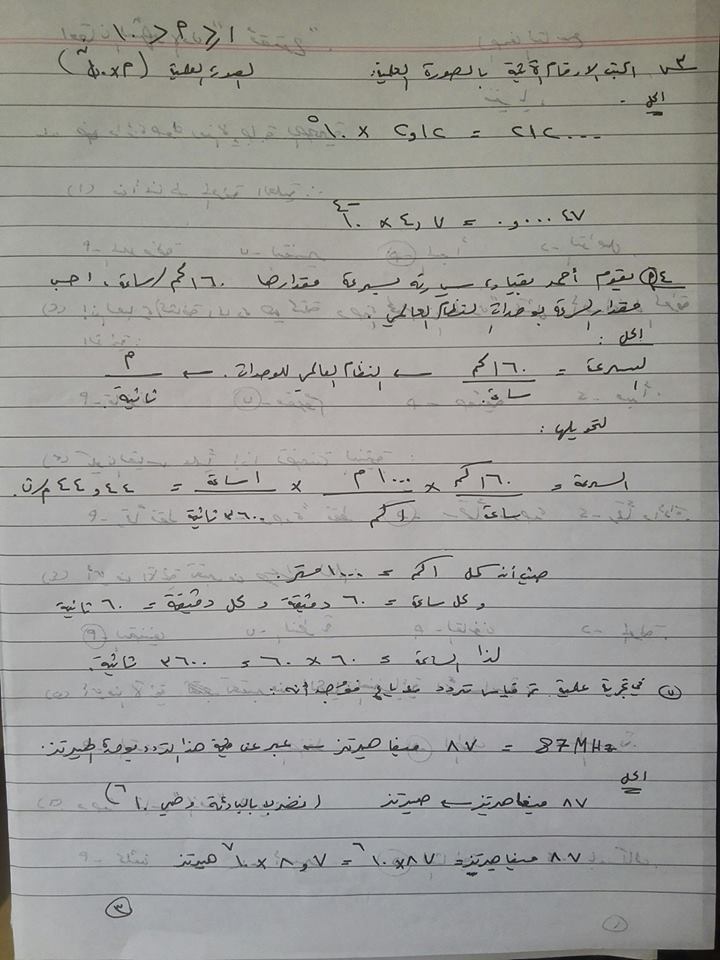 ١ ≤ م < ١٠
س٣ اكتب الارقام الآتية بالصورة العلمية: الصورة العلمية (م × ١٠ⁿ)
الحل:
٢١٢٠٠٠ = ٢,١٢ × ١٠^٥
٠,٠٠٠٤٧ = ٤,٧ × ١٠^-٤
س٤ أ) يقوم أحمد بقيادة سيارته بسرعة مقدارها ١٦٠ كم/ساعة، احسب
مقدار السرعة بوحدات النظام العالمي
الحل:
السرعة = ١٦٠ كم / ساعة ← النظام العالمي للوحدات ← م / ثانية
لتحويلها:
السرعة = ١٦٠ كم / ساعة × ١٠٠٠ م / ١ كم × ١ ساعة / ٣٦٠٠ ثانية = ٤٤,٤٤ م/ث.
حيث أنه كل ١ كم = ١٠٠٠ متر.
وكل ساعة = ٦٠ دقيقة وكل دقيقة = ٦٠ ثانية
لذا الساعة = ٦٠ × ٦٠ = ٣٦٠٠ ثانية.
ب) في تجربة علمية تم قياس تردد فوجد أنه:
87MHz = ٨٧ ميغا هيرتز ← عبر عن قيمة هذا التردد بوحدة الهيرتز.
الحل
٨٧ ميغا هيرتز ← هيرتز (نضرب بالبادئة وهي ١٠^٦)
٨٧ ميغا هيرتز = ٨٧ × ١٠^٦ = ٨,٧ × ١٠^٧ هيرتز
٣